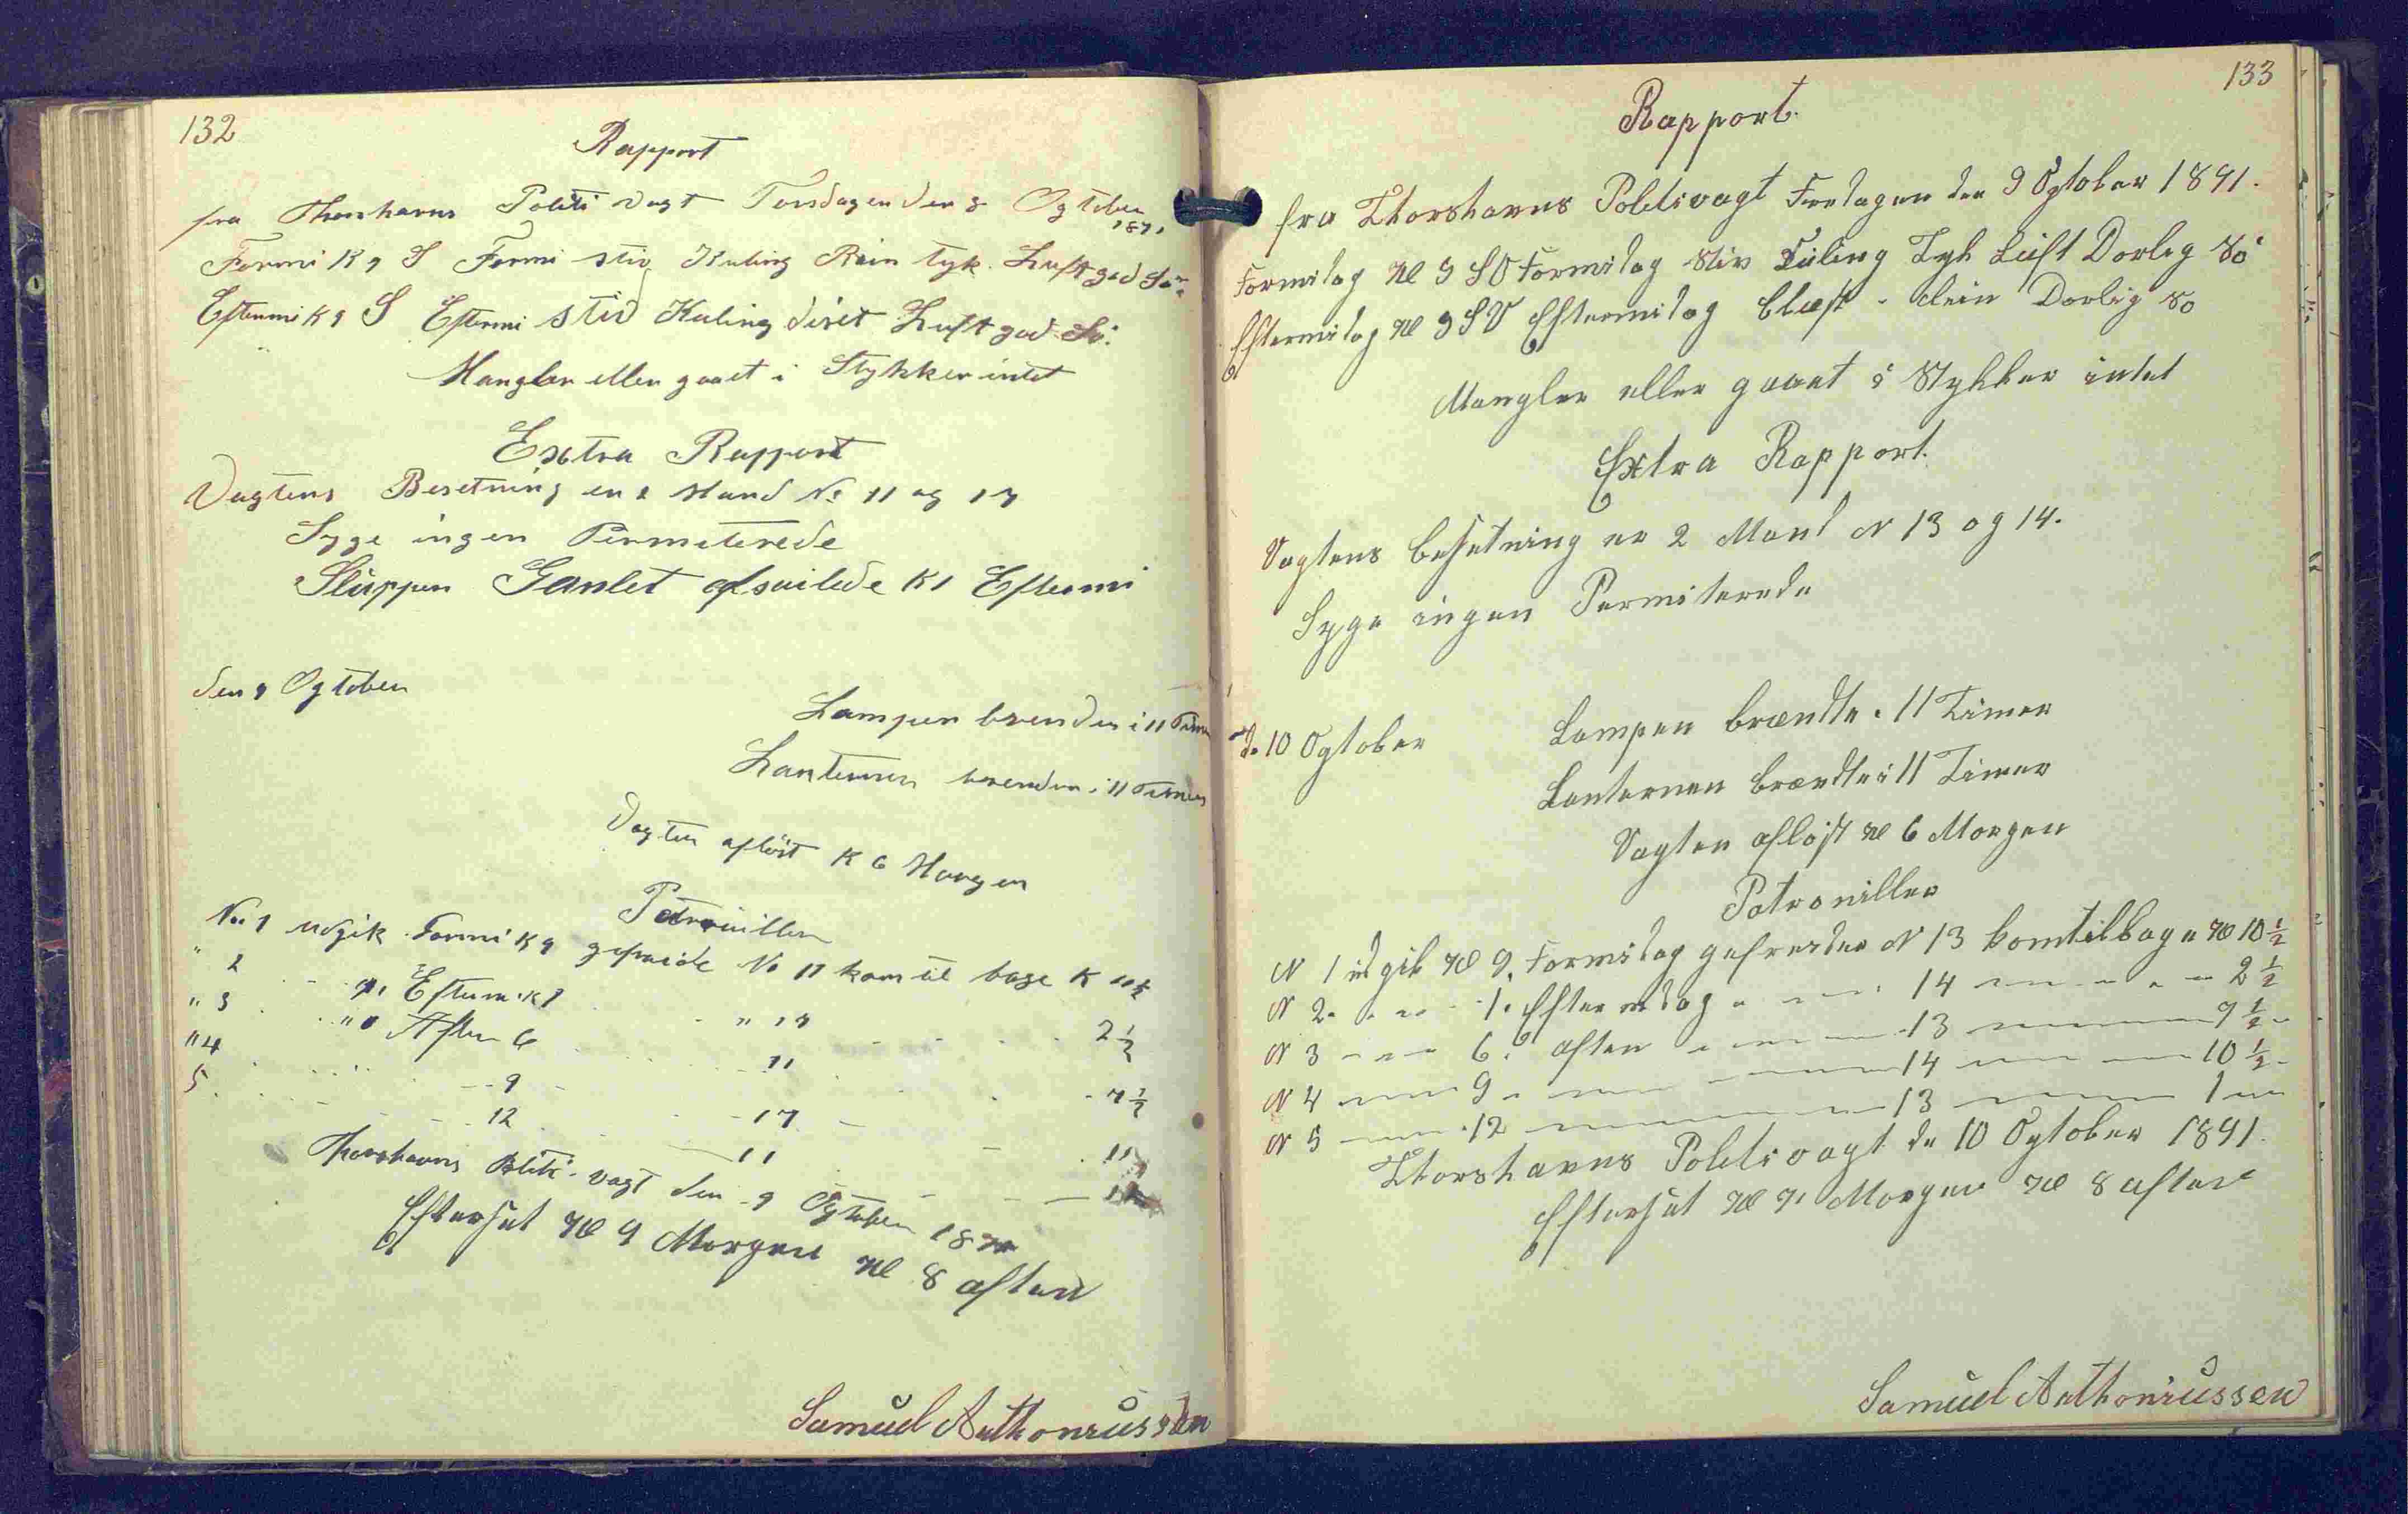 132
Rapport
fra Thorshavns Politi Vagt Torsdagen den 8 Ogtober 1891
Formi K 9 S Formi stiv Kuling Rein tyk Luft god Sø
Eftermi K 9 S Eftermi stiv Kuling diset Luft god Sø
Mangler eller gaaet i Stykker intet
Extra Rapport
Vagtens Besetning er 2 Mand No 11 og 17
Syge ingen Permiterede
Sluppen Ganlet afseilede K 1 Eftermi
den 9 Ogtober
Lampen brenden i 11 Timer
Lanternen brenden i 11 Timer
Vagten afløst K 6 Morgen
Patrouiller
No 1 udgik Formi K 9 gefreide No 11 kom til bage K 10½
" 2 " Efterm K 1 " 17 2½
" 3 " Aften 6 11 7½
" 4 9 17
5 12 11
Thorshavns Politi vagt den 9 Ogtober 1891
Efterset Kl 9 Morgen Kl 8 aften
Samuel Anthoniussen
133
Rapport.
fra Thorshavns Politivagt Fredagen den 9 Ogtober 1891.
Formidag Kl 9 SO Formidag Stiv Kuling Tyk Luft Dorlig Sö
Eftermidag Kl 9 SV Eftermidag blæst Dorlig So
Mangler eller gaaet i Stykker intet
Extra Rapport.
Vagtens besetning er 2 Mand N 13 og 14.
Syge ingen Permiterede
de 10 Ogtober
Lampen brændte i 11 Timer
Lanternen brændte i 11 Timer
Vagten afløst Kl 6 Morgen
Patroniller
N 1 udgik Kl 9. Formidag gefreider N 13 komtilbage Kl 10½
N 2 1. Eftermidag 14 2½
N 3 6. aften 13 7½
N 4 9 14 10½
N 5 12 13 1
Thorshavns Politivagt de 10 Ogtober 1891.
Efterset Kl 7. Morgen Kl 8 aften
Samuel Anthoniussen